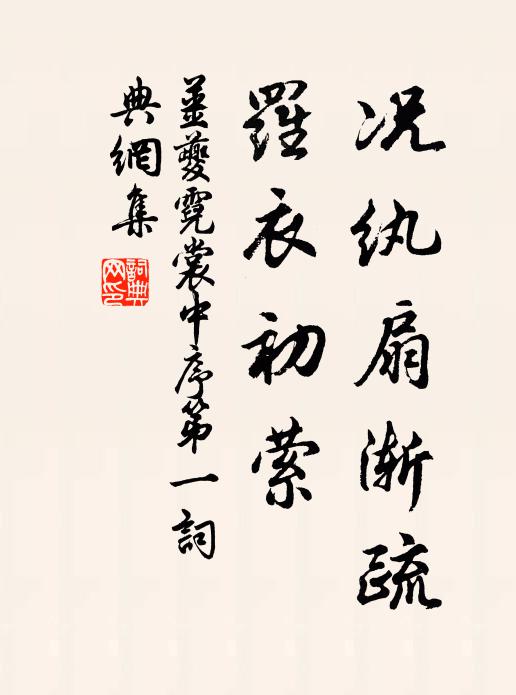 况纨扇渐疏
羅衣初索
薑夔霓裳中序第一詞
典網集
詞典
网印